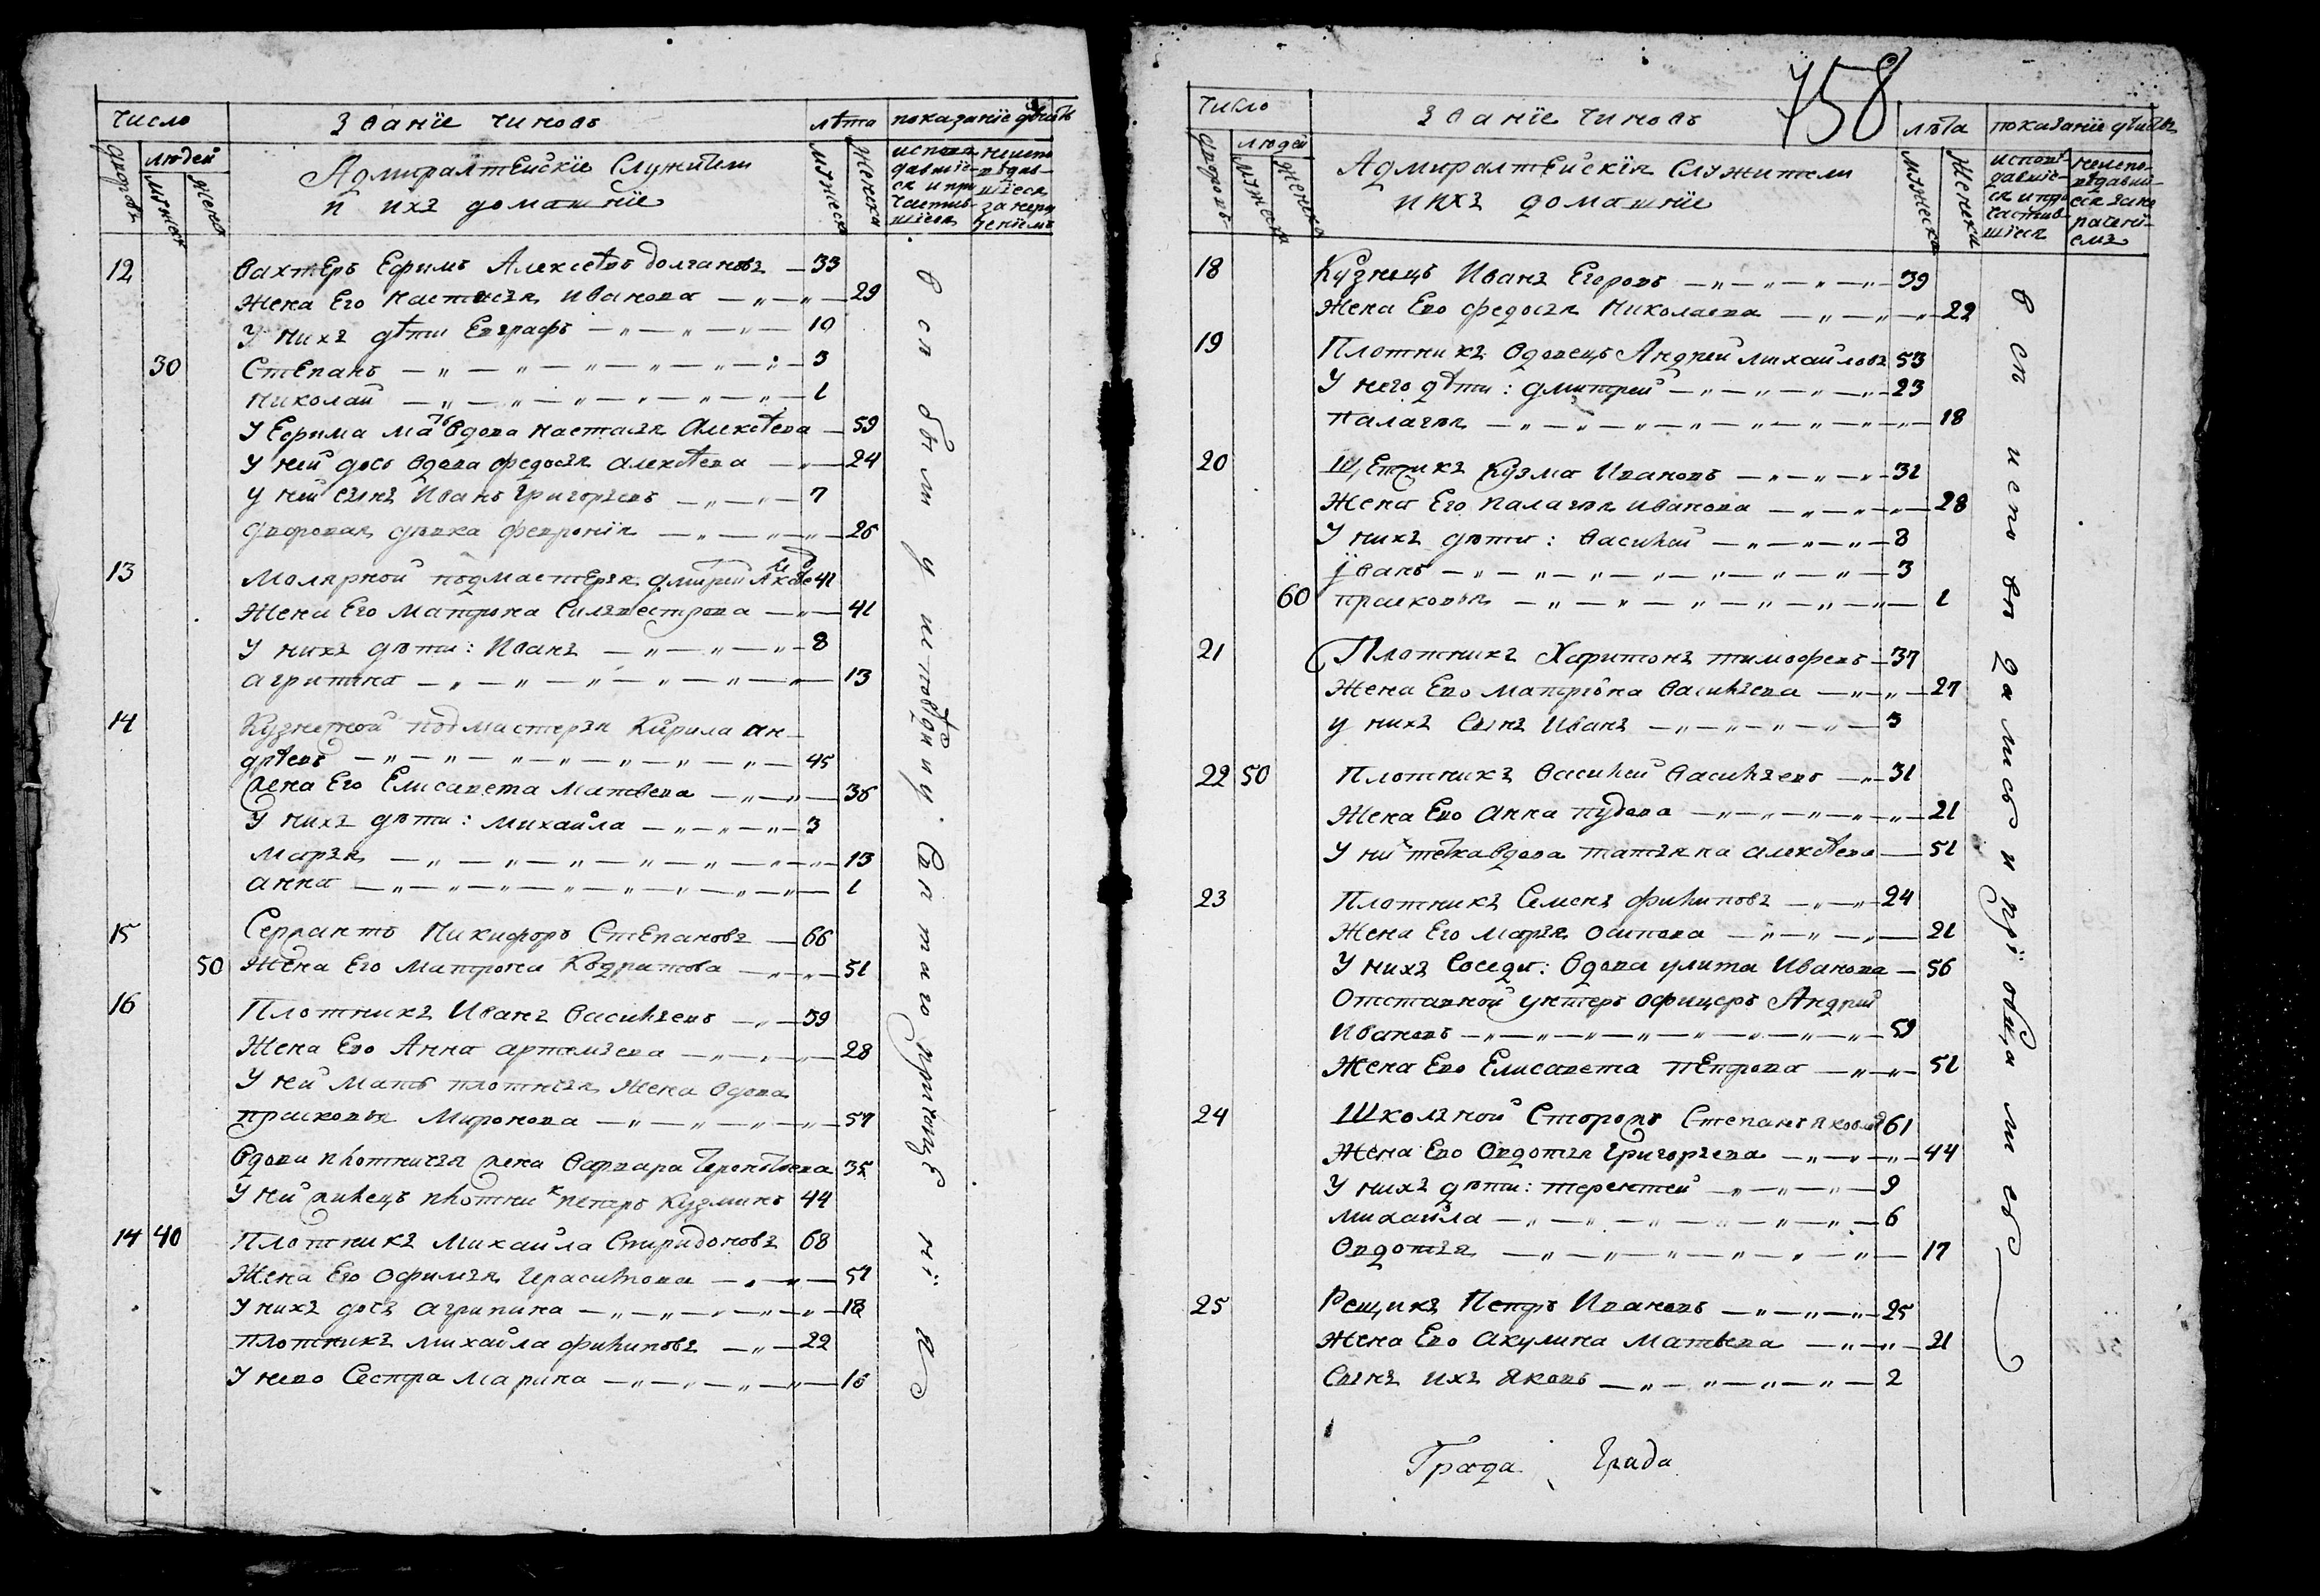 число званїе чиновъ лѣта показанїе дѣйствъ
дворовъ людей мужеска женска
Адмиралтейскїе Служители
и ихъ домашнїе
мужеска женска
исповѣдавшїеся и причастившїеся
неисповѣдавшїеся за нерачениемъ
12 вахтеръ Ефимъ Алексѣевъ Долгановъ — 33
Жена Его Настасья Иванова — „ — „ — 29
У нихъ дѣти Евграфъ — „ — „ — „ — 10
30 Степанъ — „ — „ — „ — „ — 3
Николай — „ — „ — „ — „ — „ — 1
У Ефима мать вдова Настасья Алексѣева — 59
У ней дочь вдова Федосья Алексѣева — „ — 24
у ней сынъ Иванъ Григорьевъ — „ — „ — 7
дворовая девка Феврония — „ — „ — „ — 26
13 Молярной подмастерья Дмитрей 41
Жена Его Матрона Сильвестрова — „ — 41
У нихъ дѣти: Иванъ — „ — „ — „ — 8
Агрипина — „ — „ — „ — „ — „ — 13
14 Кузнечной подмастерья Кирила Ан-
дрѣевъ — „ — „ — „ — „ — „ — 45
Жена Его Елисавета Матвеева — „ — „ — 36
У нихъ дѣти: Михайла — „ — „ — „ — 3
Марья — „ — „ — „ — „ — „ — „ — 13
Анна — „ — „ — „ — „ — „ — „ — 1
15 Сержантъ Никифоръ Степановъ — 66
50 Жена Его Матрона Кодратова — „ — „ — 51
16 Плотникъ Иванъ Васильевъ — „ — 39
Жена Ево Анна Артемьева — „ — „ — 28
У ней мать плотничья жена вдова
Прасковья Миронова — „ — „ — „ — 57
Вдова плотничья жена Варвара 35
У ней жилецъ плотникъ Петръ Кузминъ 44
14 40 Плотникъ Михайла Спиридоновъ 68
Жена Его Офимья Герасимова — „ — „ — 57
У нихъ дочь Агрипина — „ — „ — „ — 18
Плотникъ Михайла Филиповъ — „ — 22
У нево Сестра Марина — „ — „ — „ — 16
всѣ были у исповѣди и у Святаго причащенїя
758
число званїе чиновъ лѣта показанїе дѣйствъ
дворовъ людей мужеска женска
Адмиралтейскїя служители
и ихъ домашнїе
мужеска женска
исповѣдавшїеся и причастившїеся
неисповѣдавшїеся за нерачениемъ
18 Кузнецъ Иванъ Егоровъ — „ — „ — „ — 39
Жена Ево Федосья Николаева — „ — „ — 22
19 Плотникъ вдовецъ Андрей Михайловъ 53
У него дѣти: Дмитрей — „ — „ — „ — 23
Палагея — „ — „ — „ — „ — „ — „ — 18
20 Щетчикъ Кузма Ивановъ — „ — „ — 32
Жена Его Палагея Иванова — „ — „ — 28
У нихъ дѣти: Василей — „ — „ — „ — 8
Jванъ — „ — „ — „ — „ — „ — „ — 3
60 Прасковья — „ — „ — „ — „ — „ — 1
21 Плотникъ Харитонъ Тимофевъ — 37
Жена Ево Матрiона Васильева — „ — „ — 27
у нихъ сынъ Иванъ — „ — „ — „ — 3
22 50 Плотникъ Василей Васильевъ — „ — 31
Жена Ево Анна Пудова — „ — „ — „ — 21
У них тетка вдова Татьяна Алексѣева — 51
23 Плотникъ Семенъ Филиповъ — „ — „ — 24
Жена Его Марья Осипова — „ — „ — „ — 21
У нихъ Соседи: Вдова Улита Иванова — 56
Отставной унтеръ офицеръ Андрей
Ивановъ — „ — „ — „ — „ — „ — „ — 59
Жена Ево Елисавета Петрова — „ — „ — 51
24 Школьной Сторожъ Степанъ Яковлевъ 61
Жена Ево Овдотья Григорьева — „ — „ — 44
У нихъ дѣти: Терентей — „ — „ — 9
Михайла — „ — „ — „ — „ — „ — „ — 6
Овдотья — „ — „ — „ — „ — „ — 17
25 Рещикъ Петръ Ивановъ — „ — „ — „ — 25
Жена Ево Акулина Матвева — „ — „ — 21
Сынъ ихъ Яковъ — „ — „ — „ — „ — 2
всѣ исповѣдались и прїобщались
Града Града